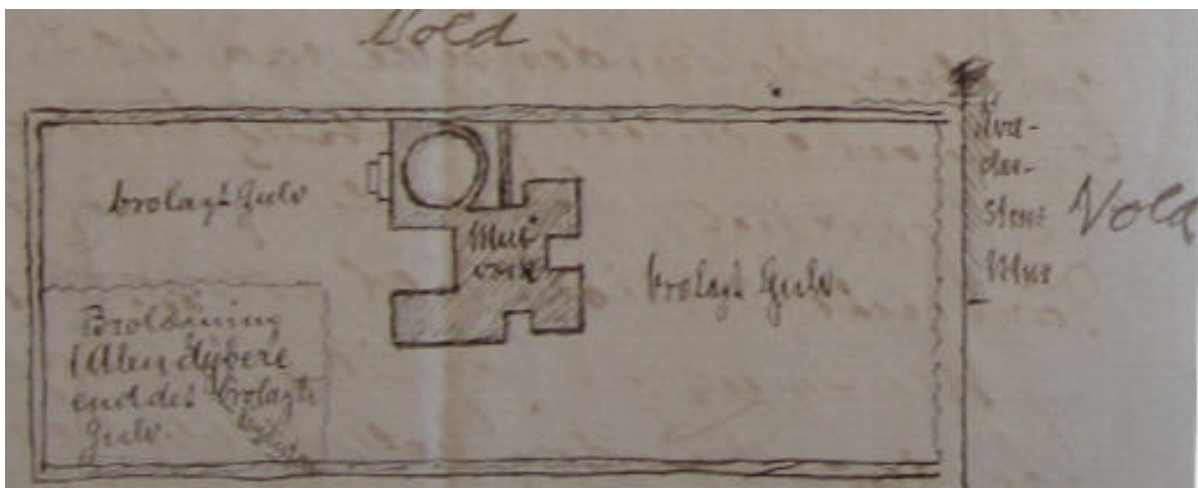 Vold
brolagt Gulv
Mur
brolagt Gulv
Kva-
der-
stens
Mur
Vold
Brolægning
1 Alen dybere
end det brolagte
Gulv.